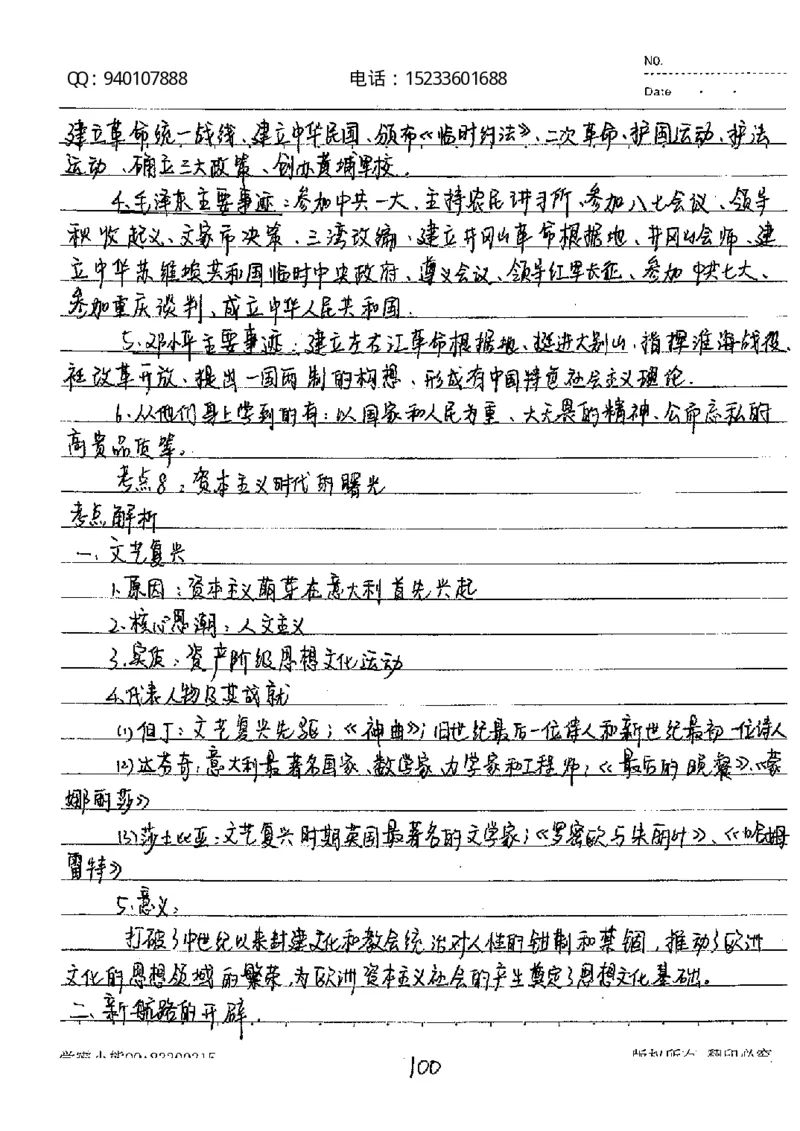 NO.
QQ：940107888 电话：15233601688
Date
建立革命统一战线、建立中华民国、颁布《临时约法》、二次革命、护国运动、护法
运动、确立三大政策、创办黄埔军校.
4、毛泽东主要事迹：参加中共一大、主持农民讲习所、参加八七会议、领导
秋收起义、文家市决策、三湾改编、建立井冈山革命根据地、井冈山会师、建
立中华苏维埃共和国临时中央政府、遵义会议、领导红军长征、参加中共七大、
参加重庆谈判、成立中华人民共和国.
5、邓小平主要事迹：建立左右江革命根据地、挺进大别山、指挥淮海战役、
社改革开放、提出一国两制的构想、形成有中国特色社会主义理论.
6、从他们身上学到的有：以国家和人民为重、大无畏的精神、公而忘私的
高贵品质等。
考点8：资本主义时代的曙光
考点解析
一、文艺复兴
1.原因：资本主义萌芽在意大利首先兴起
2.核心思潮：人文主义
3.实质：资产阶级思想文化运动
4.代表人物及其成就
(1)但丁：文艺复兴先驱；《神曲》；旧世纪最后一位诗人和新世纪最初一位诗人
(2)达芬奇：意大利最著名国家、数学家、力学家和工程师；《最后的晚餐》、《蒙
娜丽莎》
(3)莎士比亚：文艺复兴时期英国最著名的文学家；《罗密欧与朱丽叶》、《哈姆
雷特》
5.意义：
打破了中世纪以来封建文化和教会统治对人性的钳制和禁锢，推动了欧洲
文化的思想领域的繁荣，为欧洲资本主义社会的产生奠定了思想文化基础。
二、新航路的开辟.
100